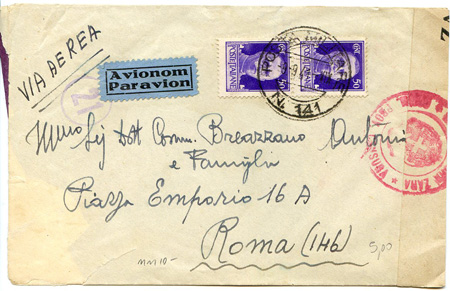 VIA AEREA
Avionom
Paravion
POSTE ITALIANE
50
POSTE ITALIANE
50
N. 141
12
Sig Dott Comm. Breazzano Antonio
e Famiglia
Piazza Emporio 16 A
Roma (146)
ZARA